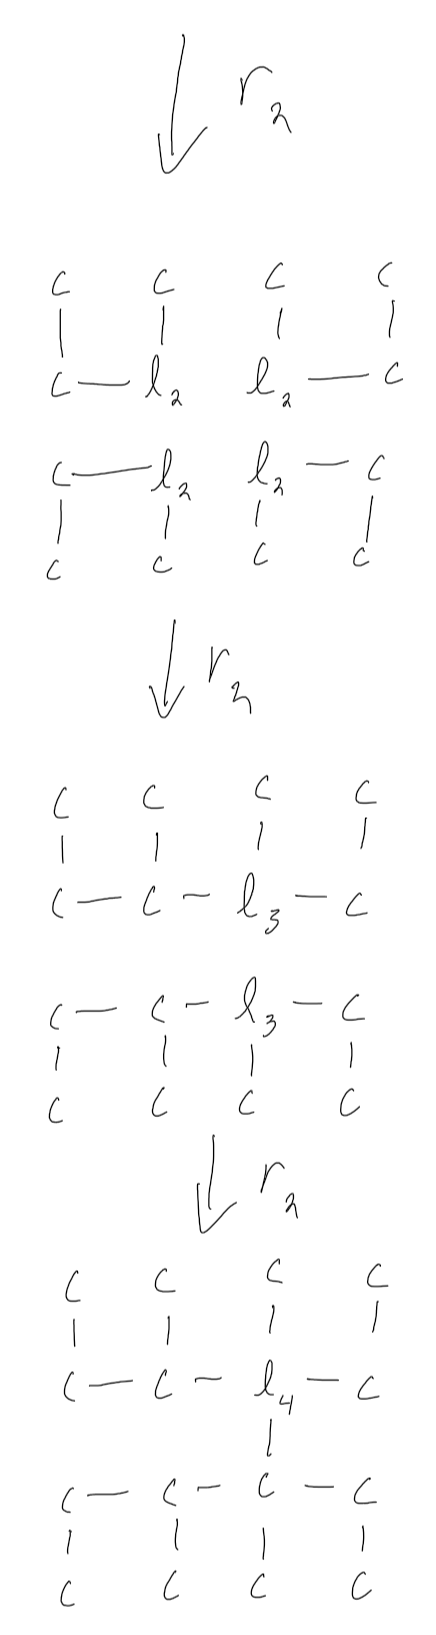 r₂
c c c c
c — l₂ l₂ — c
c — l₂ l₂ — c
c c c c
r₂
c c c c
c — c — l₃ — c
c — c — l₃ — c
c c c c
r₂
c c c c
c — c — l₄ — c
c — c — c — c
c c c c